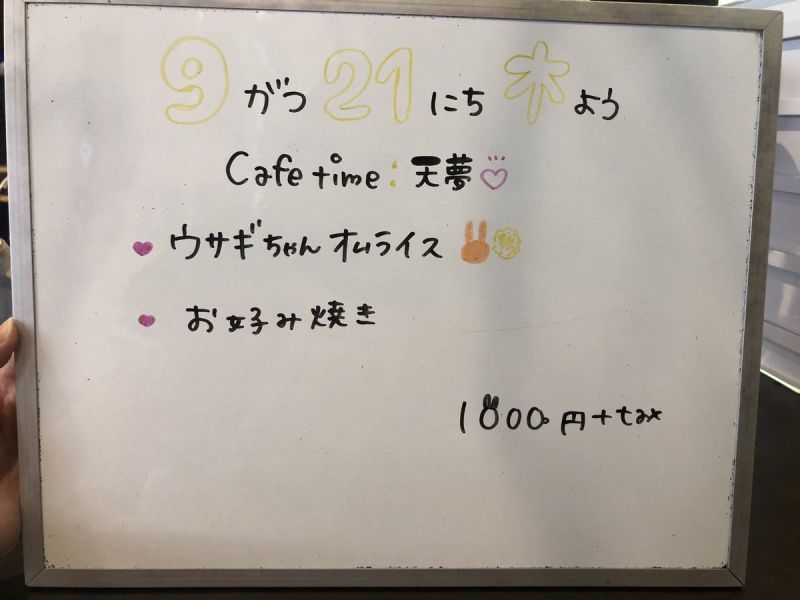 9がつ21にち木よう
Cafe time:天夢♡
♥ ウサギちゃんオムライス
♥ お好み焼き
1000円+tax